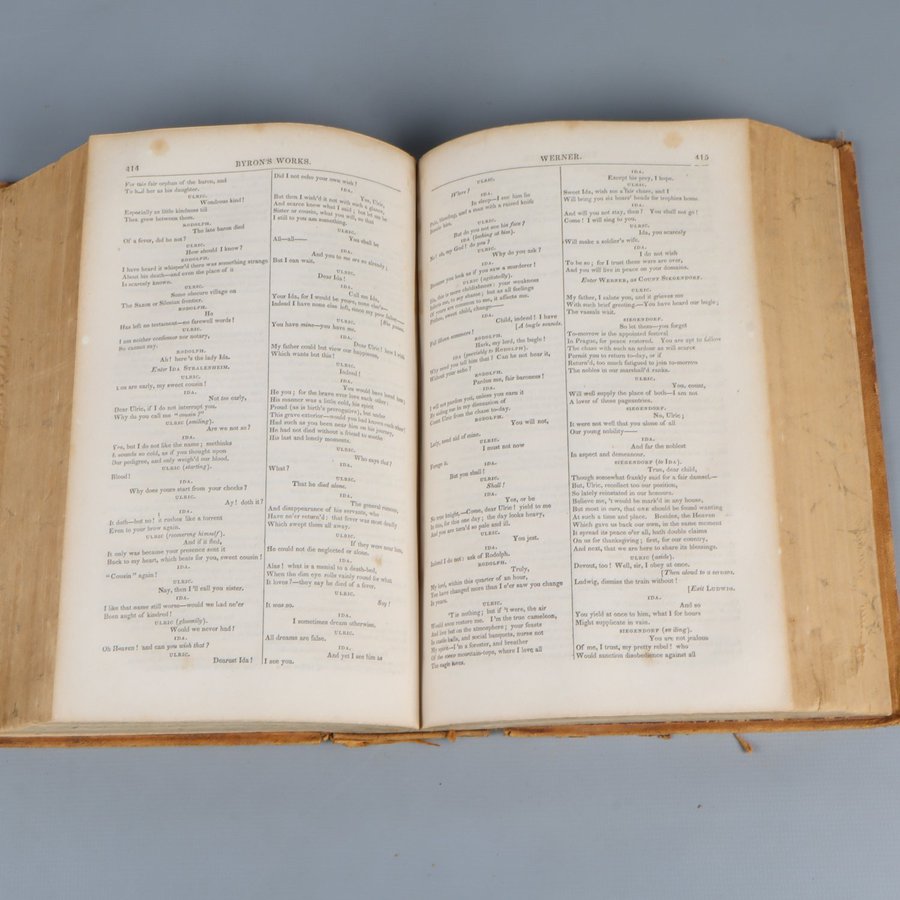 414
BYRON'S WORKS.
For this fair orphan of the baron, and
To hail her as his daughter.
ULRIC.
Wondrous kind!
Especially as little kindness till
Then grew between them.
RODOLPH.
The late baron died
Of a fever, did he not?
ULRIC.
How should I know?
RODOLPH.
I have heard it whisper'd there was something strange
About his death—and even the place of it
Is scarcely known.
ULRIC.
Some obscure village on
The Saxon or Silesian frontier.
RODOLPH.
He
Has left no testament—no farewell words?
ULRIC.
I am neither confessor nor notary,
So cannot say.
RODOLPH.
Ah! here's the lady Ida.
Enter IDA STRALENHEIM.
ULRIC.
You are early, my sweet cousin!
IDA.
Not too early,
Dear Ulric, if I do not interrupt you.
Why do you call me "cousin?"
ULRIC (smiling).
Are we not so?
IDA.
Yes, but I do not like the name; methinks
It sounds so cold, as if you thought upon
Our pedigree, and only weigh'd our blood.
ULRIC (starting).
Blood!
IDA.
Why does yours start from your cheeks?
ULRIC.
Ay! doth it?
IDA.
It doth—but no! it rushes like a torrent
Even to your brow again.
ULRIC (recovering himself).
And if it fled,
It only was because your presence sent it
Back to my heart, which beats for you, sweet cousin!
IDA.
"Cousin" again!
ULRIC.
Nay, then I'll call you sister.
IDA.
I like that name still worse—would we had ne'er
Been aught of kindred!
ULRIC (gloomily).
Would we never had!
IDA.
Oh Heaven! and can you wish that?
ULRIC.
Dearest Ida!
Did I not echo your own wish?
IDA.
Yes, Ulric,
But then I wish'd it not with such a glance,
And scarce knew what I said; but let me be
Sister or cousin, what you will, so that
I still to you am something.
ULRIC.
You shall be
All—all——
IDA.
And you to me are so already;
But I can wait.
ULRIC.
Dear Ida!
IDA.
Call me Ida,
Your Ida, for I would be yours, none else's—
Indeed I have none else left, since my poor father—
[She pauses.
ULRIC.
You have mine—you have me.
IDA.
Dear Ulric! how I wish
My father could but view our happiness,
Which wants but this!
ULRIC.
Indeed!
IDA.
You would have loved him;
He you; for the brave ever love each other:
His manner was a little cold, his spirit
Proud (as is birth's prerogative), but under
This grave exterior—would you had known each other!
Had such as you been near him on his journey,
He had not died without a friend to soothe
His last and lonely moments.
ULRIC.
Who says that?
IDA.
What?
ULRIC.
That he died alone.
IDA.
The general rumour,
And disappearance of his servants, who
Have ne'er return'd; that fever was most deadly
Which swept them all away.
ULRIC.
If they were near him,
He could not die neglected or alone.
IDA.
Alas! what is a menial to a death-bed,
When the dim eye rolls vainly round for what
It loves?—they say he died of a fever.
ULRIC.
Say!
It was so.
IDA.
I sometimes dream otherwise.
ULRIC.
All dreams are false.
IDA.
And yet I see him as
I see you.
WERNER.
415
ULRIC.
Where?
IDA.
In sleep—I see him lie
Pale, bleeding, and a man with a raised knife
Beside him.
ULRIC.
But do you not see his face?
IDA (looking at him).
No! oh, my God! do you?
ULRIC.
Why do you ask?
IDA.
Because you look as if you saw a murderer!
ULRIC (agitatedly).
Ida, this is mere childishness: your weakness
Infects me, to my shame; but as all feelings
Of yours are common to me, it affects me.
Prithee, sweet child, change—
IDA.
Child, indeed! I have
Full fifteen summers!
[A bugle sounds.
RODOLPH.
Hark, my lord, the bugle!
IDA (peevishly to RODOLPH).
Why need you tell him that? Can he not hear it,
Without your echo?
RODOLPH.
Pardon me, fair baroness!
IDA.
I will not pardon you, unless you earn it
By aiding me in my dissuasion of
Count Ulric from the chase to-day.
RODOLPH.
You will not,
Lady, need aid of mine.
ULRIC.
I must not now
Forego it.
IDA.
But you shall!
ULRIC.
Shall!
IDA.
Yes, or be
No true knight.—Come, dear Ulric! yield to me
In this, for this one day; the day looks heavy,
And you are turn'd so pale and ill.
ULRIC.
You jest.
IDA.
Indeed I do not: ask of Rodolph.
RODOLPH.
Truly,
My lord, within this quarter of an hour,
You have changed more than I e'er saw you change
In years.
ULRIC.
'Tis nothing; but if 't were, the air
Would soon restore me. I'm the true cameleon,
And live but on the atmosphere; your feasts
In castle halls, and social banquets, nurse not
My spirit—I'm a forester, and breather
Of the steep mountain-tops, where I love all
The eagle loves.
IDA.
Except his prey, I hope.
ULRIC.
Sweet Ida, wish me a fair chase, and I
Will bring you six boars' heads for trophies home.
IDA.
And will you not stay, then? You shall not go!
Come! I will sing to you.
ULRIC.
Ida, you scarcely
Will make a soldier's wife.
IDA.
I do not wish
To be so; for I trust these wars are over,
And you will live in peace on your domains.
Enter WERNER, as COUNT SIEGENDORF.
ULRIC.
My father, I salute you, and it grieves me
With such brief greeting.—You have heard our bugle;
The vassals wait.
SIEGENDORF.
So let them—you forget
To-morrow is the appointed festival
In Prague, for peace restored. You are apt to follow
The chase with such an ardour as will scarce
Permit you to return to-day, or if
Return'd, too much fatigued to join to-morrow
The nobles in our marshall'd ranks.
ULRIC.
You, count,
Will well supply the place of both—I am not
A lover of these pageantries.
SIEGENDORF.
No, Ulric;
It were not well that you alone of all
Our young nobility——
IDA.
And far the noblest
In aspect and demeanour.
SIEGENDORF (to IDA).
True, dear child,
Though somewhat frankly said for a fair damsel.—
But, Ulric, recollect too our position,
So lately reinstated in our honours.
Believe me, 't would be mark'd in any house,
But most in ours, that one should be found wanting
At such a time and place. Besides, the Heaven
Which gave us back our own, in the same moment
It spread its peace o'er all, hath double claims
On us for thanksgiving; first, for our country,
And next, that we are here to share its blessings.
ULRIC (aside).
Devout, too! Well, sir, I obey at once.
[Then aloud to a servant.
Ludwig, dismiss the train without!
[Exit LUDWIG.
IDA.
And so
You yield at once to him, what I for hours
Might supplicate in vain.
SIEGENDORF (smiling).
You are not jealous
Of me, I trust, my pretty rebel! who
Would sanction disobedience against all